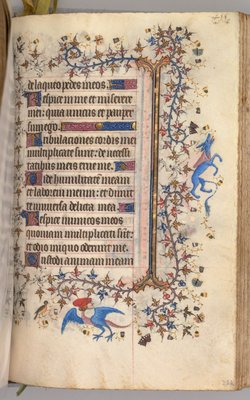 de laqueo pedes meos.
Respice in me et miserere
mei: quia unicus et pauper
sum ego.
Tribulationes cordis mei
multiplicate sunt: de necessi
tatibus meis erue me.
Vide humilitatem meam
et laborem meum: et dimit
te universa delicta mea.
Respice inimicos meos
quoniam multiplicati sunt:
et odio iniquo oderunt me.
Custodi animam meam